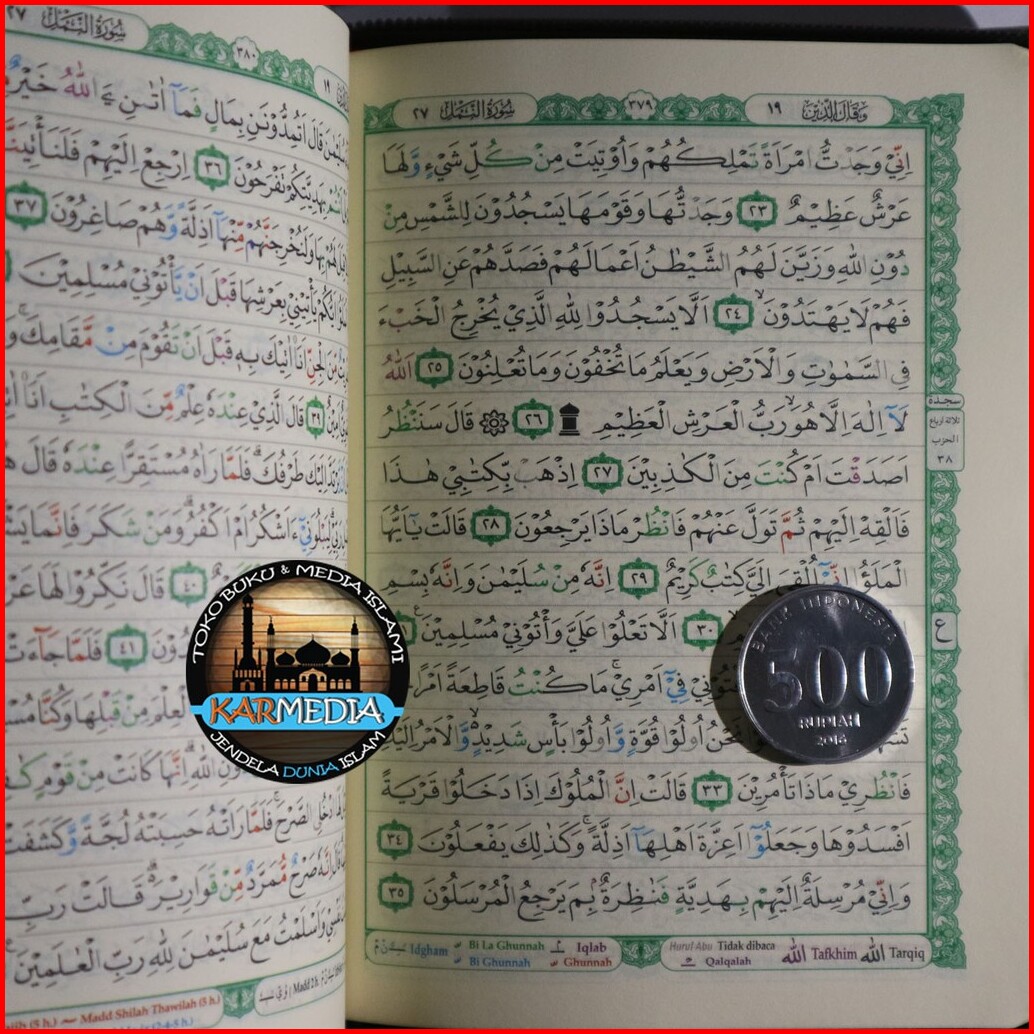 وَقَالَ الَّذِيْنَ ١٩
٣٧٩
سُوْرَةُ النَّمْلِ ٢٧
اِنِّيْ وَجَدْتُّ امْرَاَةً تَمْلِكُهُمْ وَاُوْتِيَتْ مِنْ كُلِّ شَيْءٍ وَّلَهَا
عَرْشٌ عَظِيْمٌ ٢٣ وَجَدْتُّهَا وَقَوْمَهَا يَسْجُدُوْنَ لِلشَّمْسِ مِنْ
دُوْنِ اللّٰهِ وَزَيَّنَ لَهُمُ الشَّيْطٰنُ اَعْمَالَهُمْ فَصَدَّهُمْ عَنِ السَّبِيْلِ
فَهُمْ لَا يَهْتَدُوْنَۙ ٢٤ اَلَّا يَسْجُدُوْا لِلّٰهِ الَّذِيْ يُخْرِجُ الْخَبْءَ
فِى السَّمٰوٰتِ وَالْاَرْضِ وَيَعْلَمُ مَا تُخْفُوْنَ وَمَا تُعْلِنُوْنَ ٢٥ اَللّٰهُ
لَآ اِلٰهَ اِلَّا هُوَۙ رَبُّ الْعَرْشِ الْعَظِيْمِ ۩ ٢٦ ۞ قَالَ سَنَنْظُرُ
اَصَدَقْتَ اَمْ كُنْتَ مِنَ الْكٰذِبِيْنَ ٢٧ اِذْهَبْ بِّكِتٰبِيْ هٰذَا
فَاَلْقِهْ اِلَيْهِمْ ثُمَّ تَوَلَّ عَنْهُمْ فَانْظُرْ مَاذَا يَرْجِعُوْنَ ٢٨ قَالَتْ يٰٓاَيُّهَا
الْمَلَؤُا اِنِّيْٓ اُلْقِيَ اِلَيَّ كِتٰبٌ كَرِيْمٌ ٢٩ اِنَّهٗ مِنْ سُلَيْمٰنَ وَاِنَّهٗ بِسْمِ
٣٠ اَلَّا تَعْلُوْا عَلَيَّ وَأْتُوْنِيْ مُسْلِمِيْنَ
فِيْٓ اَمْرِيْۚ مَا كُنْتُ قَاطِعَةً اَمْرًا
اُولُوْا قُوَّةٍ وَّاُولُوْا بَأْسٍ شَدِيْدٍۙ وَّالْاَمْرُ اِلَيْكِ
فَانْظُرِيْ مَاذَا تَأْمُرِيْنَ ٣٣ قَالَتْ اِنَّ الْمُلُوْكَ اِذَا دَخَلُوْا قَرْيَةً
اَفْسَدُوْهَا وَجَعَلُوْٓا اَعِزَّةَ اَهْلِهَآ اَذِلَّةًۚ وَكَذٰلِكَ يَفْعَلُوْنَ ٣٤
وَاِنِّيْ مُرْسِلَةٌ اِلَيْهِمْ بِهَدِيَّةٍ فَنٰظِرَةٌۢ بِمَ يَرْجِعُ الْمُرْسَلُوْنَ ٣٥
سجدة
ثلاثة أرباع
الحزب
٣٨
ع
Idgham
Bi La Ghunnah
Bi Ghunnah
Iqlab
Ghunnah
Huruf Abu Tidak dibaca
Qalqalah
الله Tafkhim
الله Tarqiq
BANK INDONESIA
500
RUPIAH
2016
١٩
٣٨٠
سُوْرَةُ النَّمْلِ ٢٧
سُلَيْمٰنَ قَالَ اَتُمِدُّوْنَنِ بِمَالٍ فَمَآ اٰتٰىنِ ےَ اللّٰهُ خَيْرٌ
بِهَدِيَّتِكُمْ تَفْرَحُوْنَ ٣٦ اِرْجِعْ اِلَيْهِمْ فَلَنَأْتِيَنَّ
بِهَا وَلَنُخْرِجَنَّهُمْ مِّنْهَآ اَذِلَّةً وَّهُمْ صَاغِرُوْنَ ٣٧
اَيُّكُمْ يَأْتِيْنِيْ بِعَرْشِهَا قَبْلَ اَنْ يَّأْتُوْنِيْ مُسْلِمِيْنَ
الْجِنِّ اَنَا۠ اٰتِيْكَ بِهٖ قَبْلَ اَنْ تَقُوْمَ مِنْ مَّقَامِكَۚ
٣٩ قَالَ الَّذِيْ عِنْدَهٗ عِلْمٌ مِّنَ الْكِتٰبِ اَنَا۠
اِلَيْكَ طَرْفُكَۗ فَلَمَّا رَاٰهُ مُسْتَقِرًّا عِنْدَهٗ قَالَ
ءَاَشْكُرُ اَمْ اَكْفُرُۗ وَمَنْ شَكَرَ فَاِنَّمَا
٤٠ قَالَ نَكِّرُوْا لَهَا
٤١ فَلَمَّا جَاۤءَتْ
الْعِلْمَ مِنْ قَبْلِهَا وَكُنَّا
اللّٰهِ اِنَّهَا كَانَتْ مِنْ قَوْمٍ
الصَّرْحَۚ فَلَمَّا رَاَتْهُ حَسِبَتْهُ لُجَّةً وَّكَشَفَتْ
اِنَّهٗ صَرْحٌ مُّمَرَّدٌ مِّنْ قَوَارِيْرَ ۗ قَالَتْ رَبِّ
وَاَسْلَمْتُ مَعَ سُلَيْمٰنَ لِلّٰهِ رَبِّ الْعٰلَمِيْنَ
Madd Shilah Thawilah (5 h.)
Madd 2 h.
TOKO BUKU & MEDIA ISLAMI
KARMEDIA
JENDELA DUNIA ISLAM